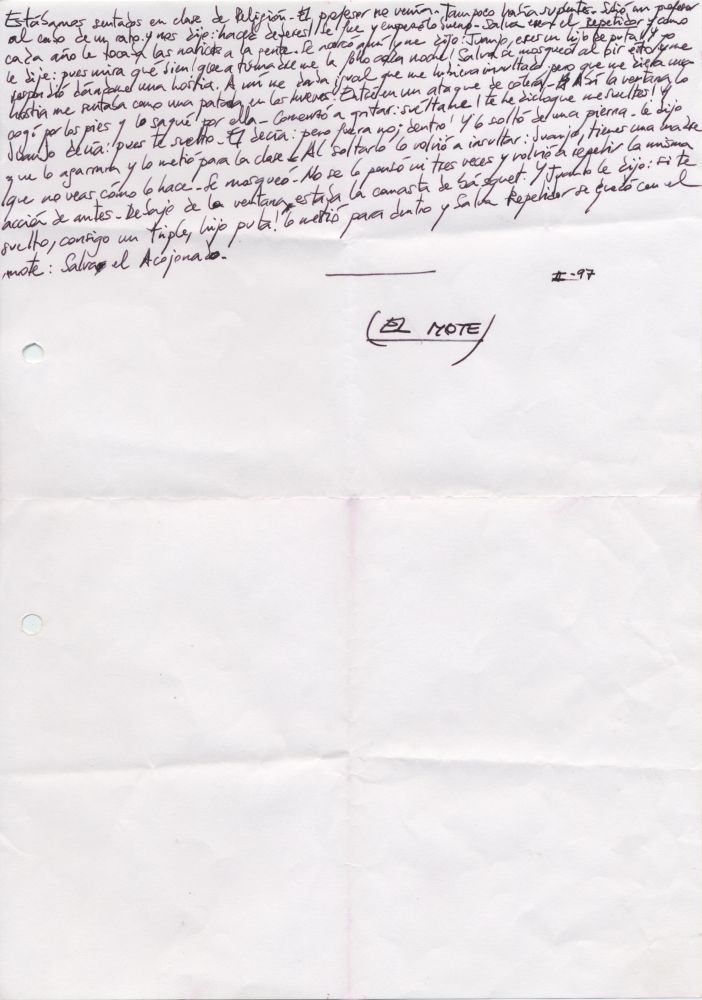 Estábamos sentados en clase de Religión. El profesor no venía. Tampoco había suplentes. Subió un profesor
al cabo de un rato y nos dijo: haced deberes! Se fue y empezó lo bueno. Salva era el repetidor y como
cada año le toca las narices a la gente. Se acercó aquí y me dijo: Juanjo, eres un hijo de puta! y yo
le dije: pues mira qué bien! que a tu madre me la follo cada noche! Salva se mosqueó al oir esto y me
respondió dándome una hostia. A mí me daba igual que me hubiera insultado, pero que me diera una
hostia me sentaba como una patada en los huevos. Entré en un ataque de cólera. Abrí la ventana, lo
cogí por los pies y lo saqué por ella. Comenzó a gritar: suéltame! te he dicho que me sueltes! y
Juanjo decía: pues te suelto. El decía: pero fuera no; dentro! Y lo soltó de una pierna. le dijo
que lo agarrara y lo metió para la clase. Al soltarlo lo volvió a insultar: Juanjo, tienes una madre
que no veas cómo lo hace. Se mosqueó. No se lo pensó ni tres veces y volvió a repetir la misma
acción de antes. Debajo de la ventana estaba la canasta de básquet. Y Juanjo le dijo: si te
suelto, consigo un triple, hijo puta! lo metió para dentro y Salva Repetidor se quedó con el
mote: Salva el Acojonado.
II-97
(EL MOTE)